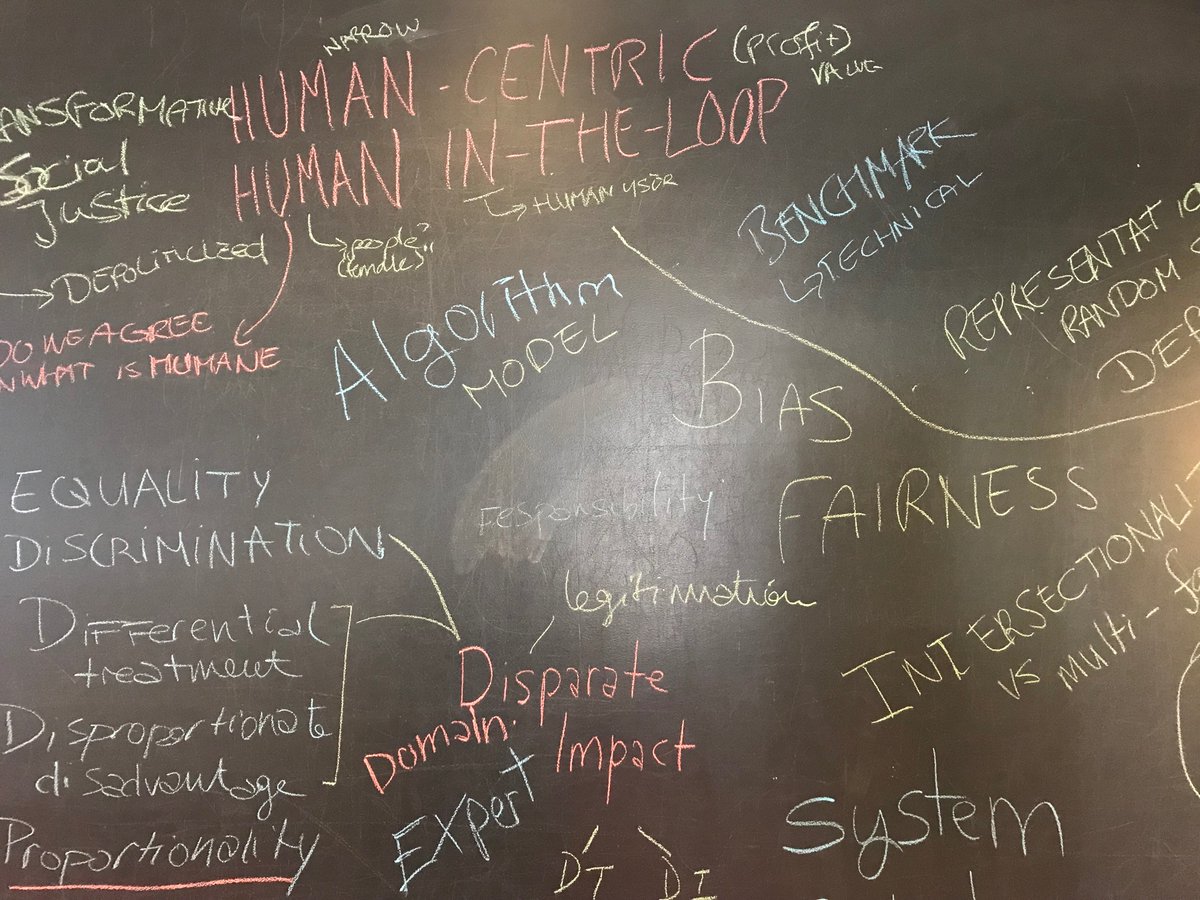 NARROW
HUMAN-CENTRIC
(Profit)
VALUE
HUMAN IN-THE-LOOP
HUMAN USER
people?
ANSFORMATIVE
Social
Justice
DEPOLITICIZED
DO WE AGREE
N WHAT IS HUMANE
BENCHMARK
TECHNICAL
Algorithm
MODEL
REPRESENTATIO
RANDOM S
DEP
BIAS
FAIRNESS
responsibility
legitimation
EQUALITY
DISCRIMINATION
Differential
treatment
Disproportionate
disadvantage
Proportionality
Disparate
Impact
Domain
Expert
DT
DI
INTERSECTIONALIT
vs multi-fa
System